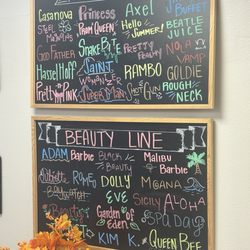 Casanova Princess Axel BUFFET
STEEL PROM QUEEN Hello Summer! BEATLE JUICE
GOD FATHER SNAKE BITE PRETTY NOLA VAMP
Hasselhoff SAINT RAMBO GOLDIE
Pretty Pink SUPER MAN SHOT GUN ROUGH NECK
BEAUTY LINE
ADAM Barbie BLACK BEAUTY Malibu Barbie
ROMEO DOLLY MOANA
BAYWATCH EVE SICILY ALOHA
Garden of Eden SPA DAY
KIM K. QUEEN BEE